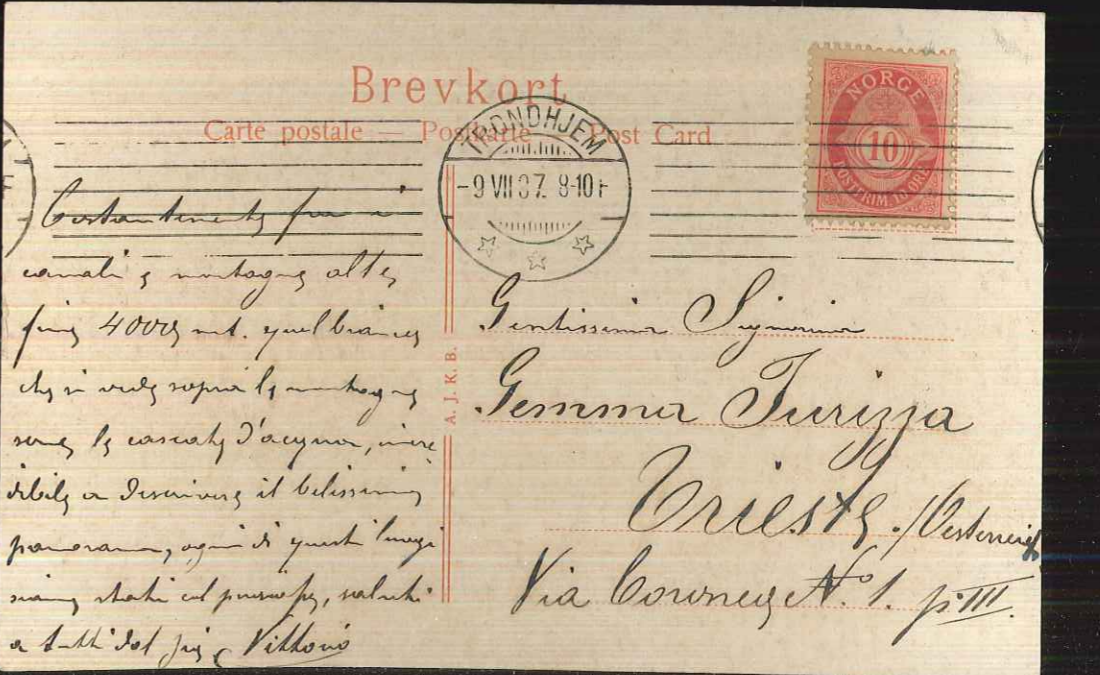 Brevkort
Carte postale — Postkarte — Post Card
NORGE
10
POSTFRIM. 10 ØRE
TRONDHJEM
-9 VII 07. 8-10 F
Costantemente fra i
canali e montagne alte
fino 4000 mt. quel bianco
che si vede sopra le montagne
sono le cascate d'acqua, incre
dibile a descrivere il belissimo
panorama, ogni di questi luoghi
siamo stati col piroscafo, saluti
a tutti dal Vittorio
A. J. K. B.
Gentissima Signorina
Gemma Turizza
Trieste /Oesterreich
Via Nº 1. p. III.